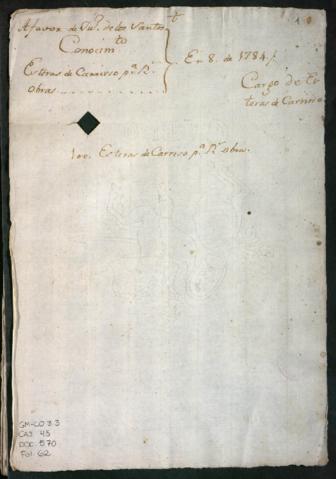 A favor de Jul. de los Santos
Conocimto
Esteras de Carrizo pa. Rs.
obras
En 8. de 1784.
Cargo de Es
teras de Carrizo
100. Esteras de Carrizo pa. Rs. obras.
GM-CO 33
CAJ. 45
DOC. 570
Fol 62